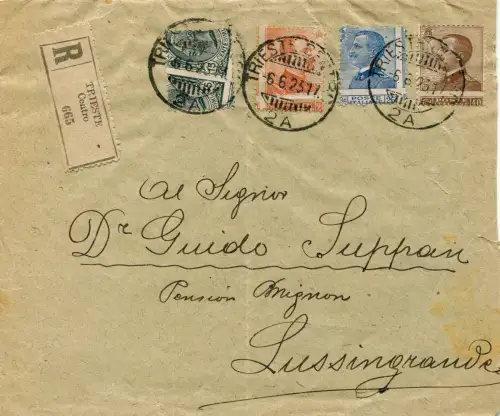 R
TRIESTE
Centro
665
TRIESTE CENTRO
6.6.23.17
2A
Al Signor
Dr Guido Suppan
Pension Mignon
Lussingrande